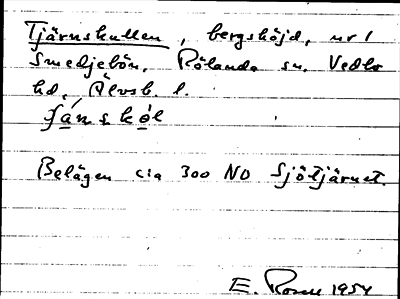 Tjärnskullen, bergshöjd, nr 1
Smedjebön. Rölanda sn. Vedbo
hd, Älvsb. l.
Belägen c:a 300 NO Sjötjärnet.
E. Rosen 1954